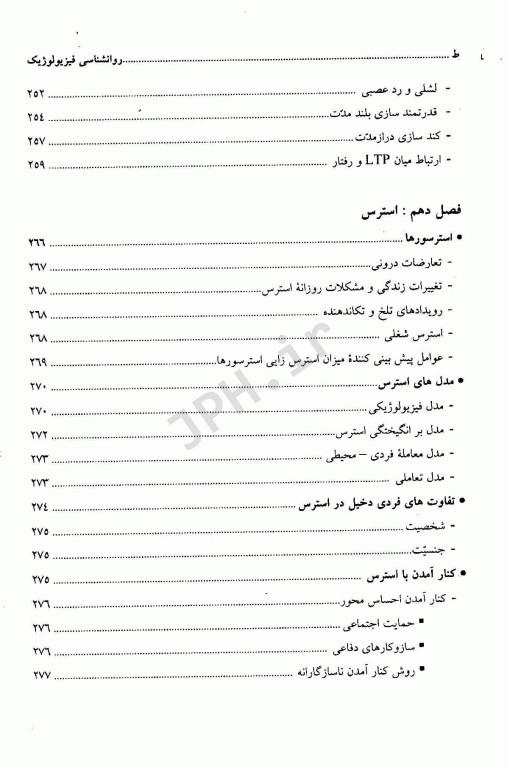 ط ........ روانشناسی فیزیولوژیک
- لشلی و رد عصبی ........ ۲۵۲
- قدرتمند سازی بلند مدّت ........ ۲۵٤
- کند سازی درازمدّت ........ ۲۵۷
- ارتباط میان LTP و رفتار ........ ۲۵۹
فصل دهم : استرس
• استرسورها ........ ۲٦٦
- تعارضات درونی ........ ۲٦۷
- تغییرات زندگی و مشکلات روزانهٔ استرس ........ ۲٦۸
- رویدادهای تلخ و تکاندهنده ........ ۲٦۸
- استرس شغلی ........ ۲٦۸
- عوامل پیش بینی کنندهٔ میزان استرس زایی استرسورها ........ ۲٦۹
• مدل های استرس ........ ۲۷۰
- مدل فیزیولوژیکی ........ ۲۷۰
- مدل بر انگیختگی استرس ........ ۲۷۲
- مدل معاملهٔ فردی – محیطی ........ ۲۷۳
- مدل تعاملی ........ ۲۷۳
• تفاوت های فردی دخیل در استرس ........ ۲۷٤
- شخصیت ........ ۲۷۵
- جنسیّت ........ ۲۷۵
• کنار آمدن با استرس ........ ۲۷۵
- کنار آمدن احساس محور ........ ۲۷٦
▪ حمایت اجتماعی ........ ۲۷٦
▪ سازوکارهای دفاعی ........ ۲۷٦
▪ روش کنار آمدن ناسازگارانه ........ ۲۷۷
JPH.ir